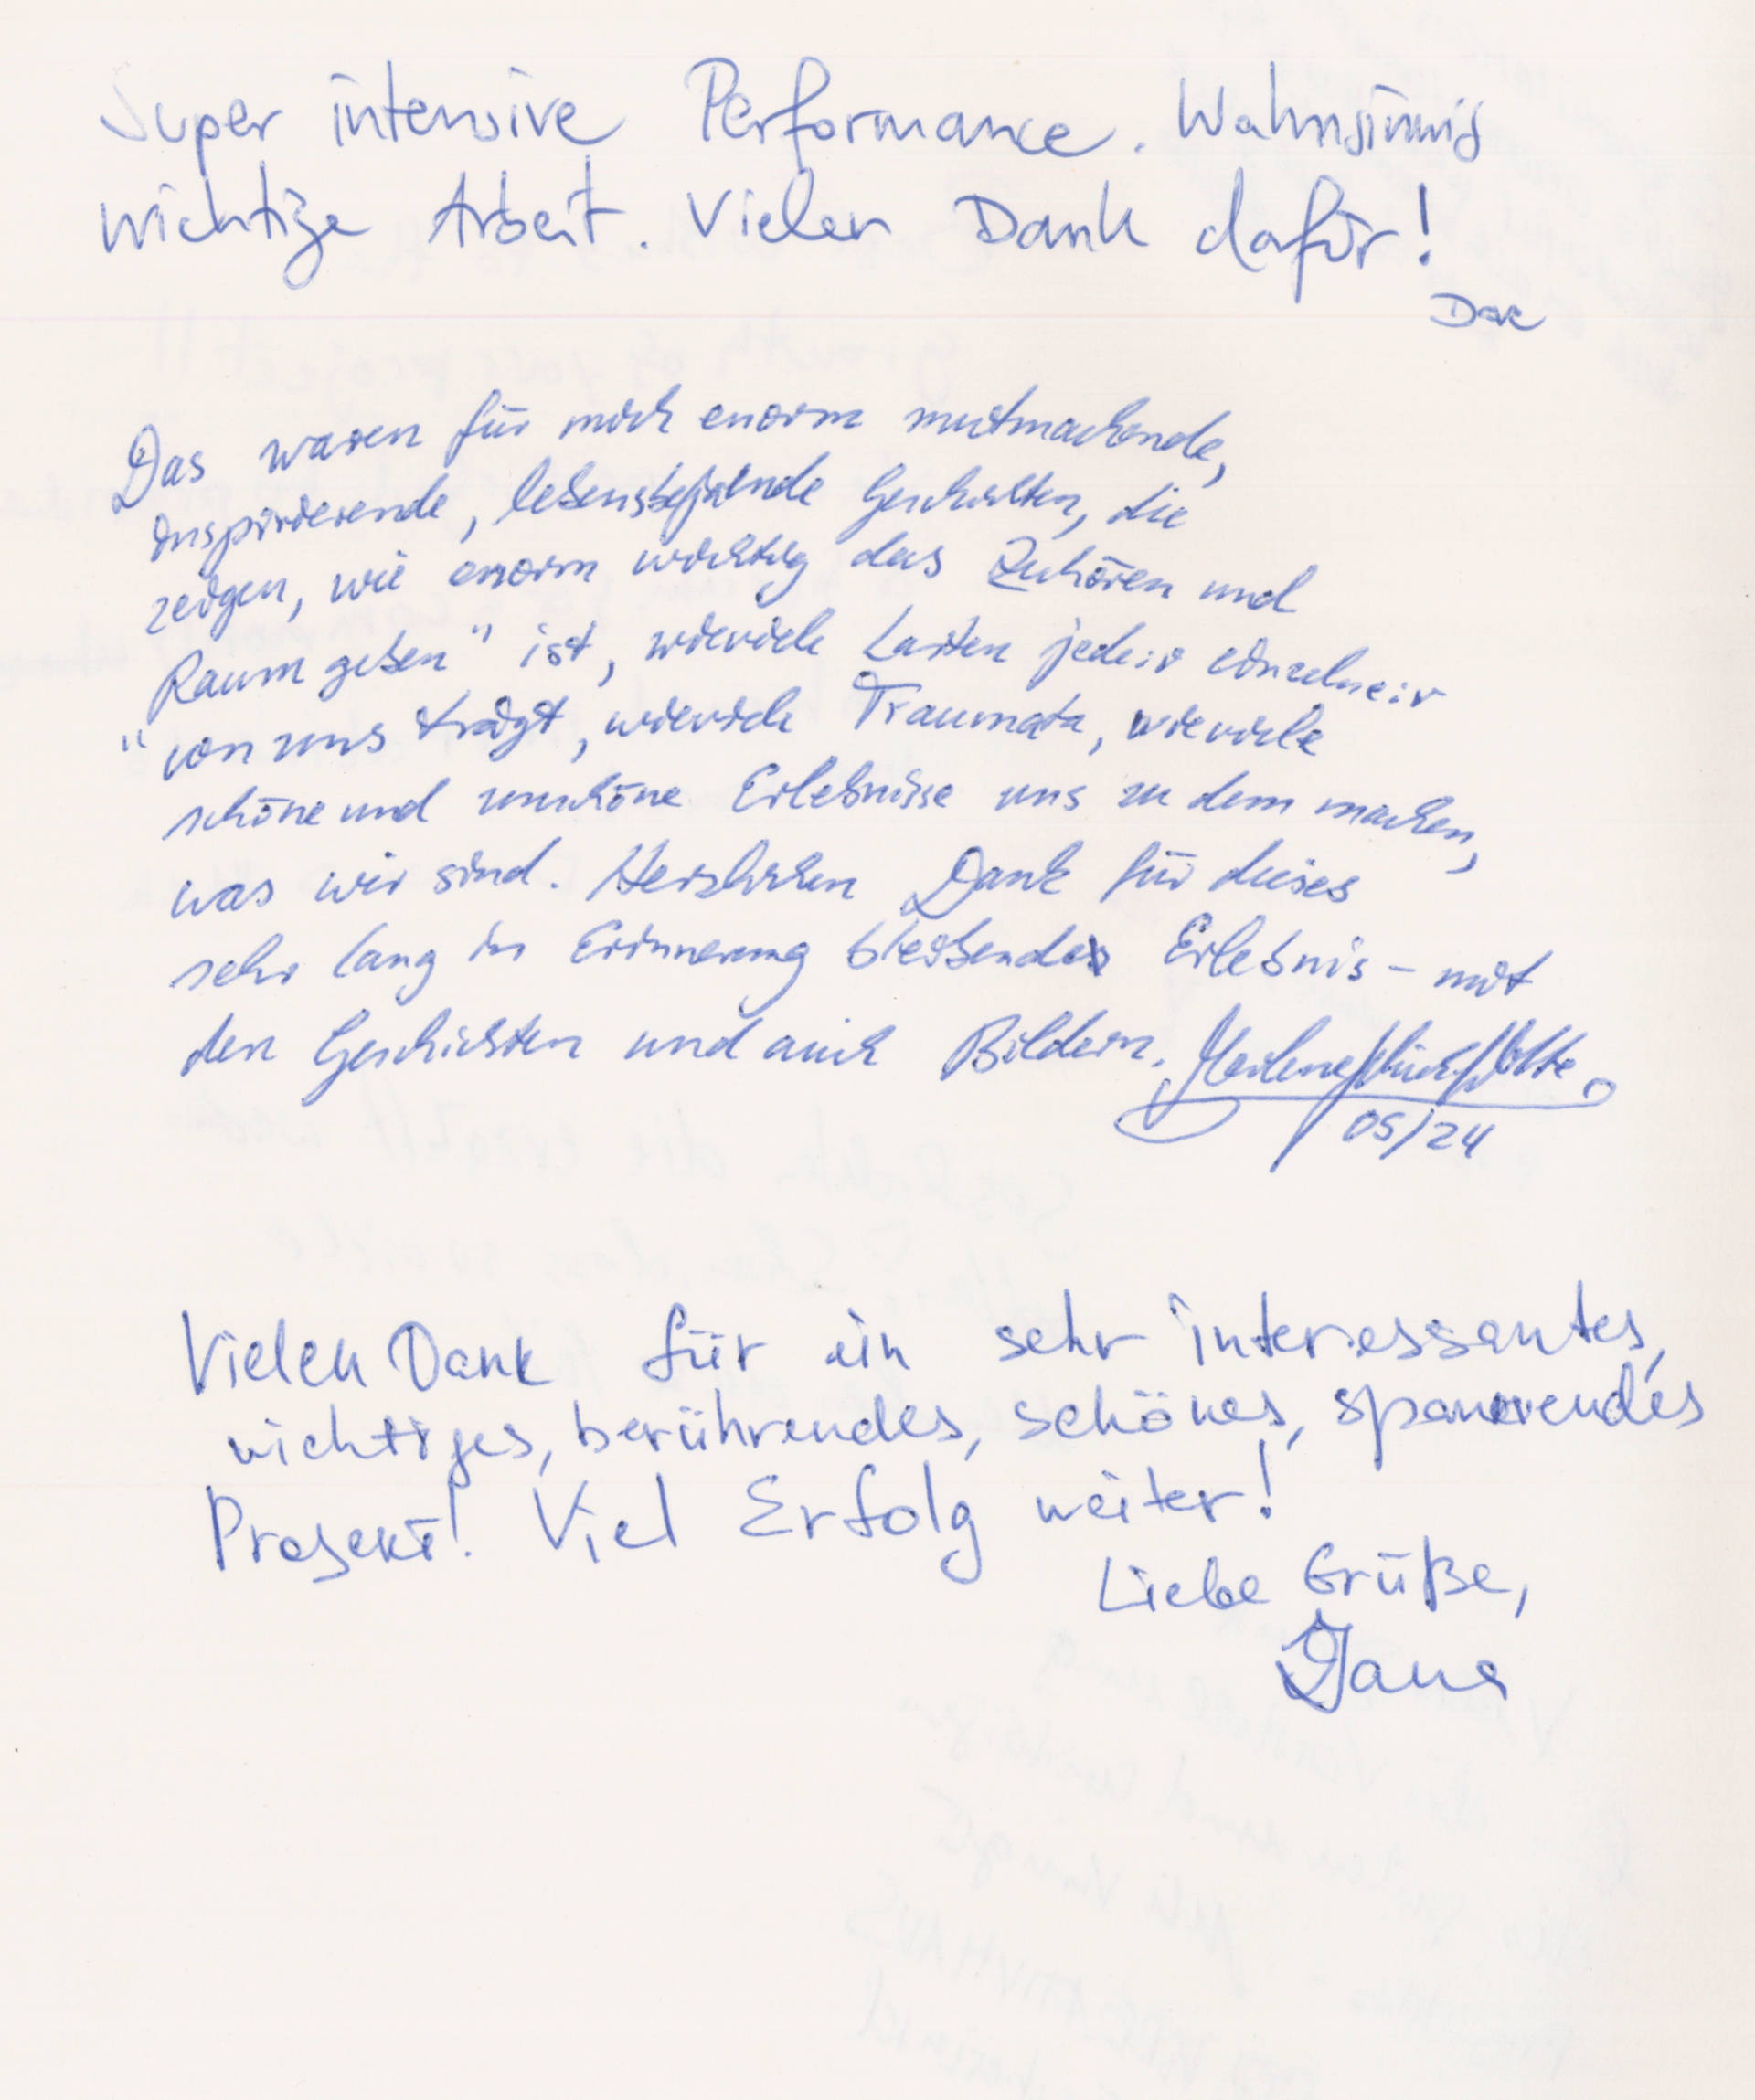 Super intensive Performance. Wahnsinnig
wichtige Arbeit. Vielen Dank dafür!
Das waren für mich enorm mutmachende,
inspirierende, lebensbejahende Geschichten, die
zeigen, wie enorm wichtig das Zuhören und
Raum geben" ist, wieviele Lasten jede:r einzelne:r
"von uns trägt, wieviele Traumata, wieviele
schöne und unschöne Erlebnisse uns zu dem machen,
was wir sind. Herzlichen Dank für dieses
sehr lang in Erinnerung bleibendes Erlebnis – mit
den Geschichten und auch Bildern. Marlene
05/24
Vielen Dank für ein sehr interessantes,
wichtiges, berührendes, schönes, spannendes
Projekt! Viel Erfolg weiter!
Liebe Grüße,
Jana